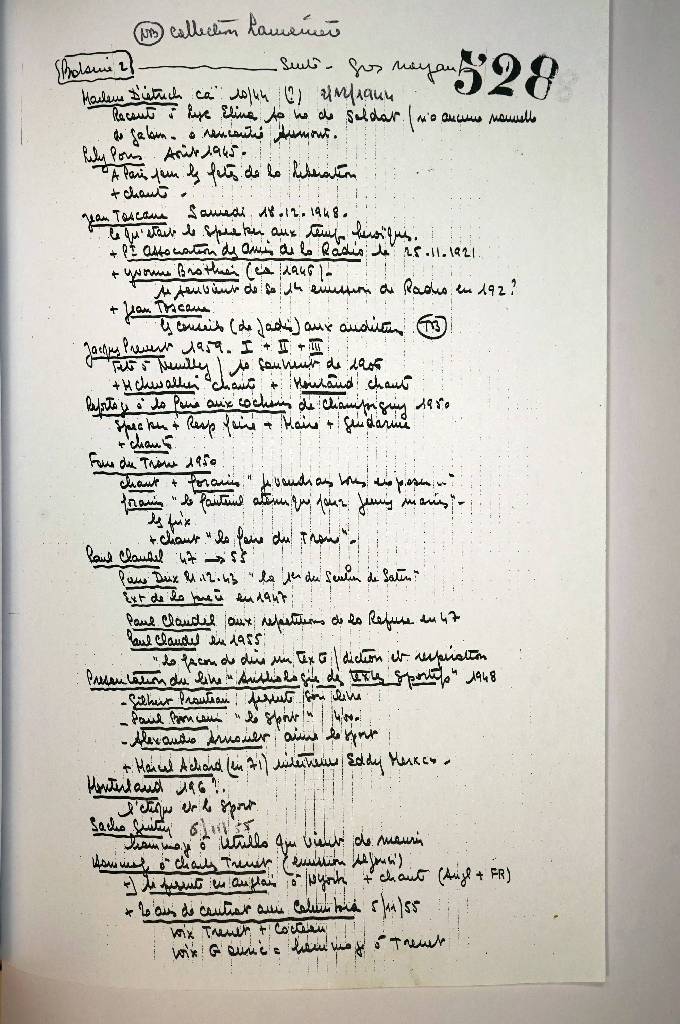 NB collection
Bobine 2 — Suite - Gros noyau 528
Marlene Dietrich ca 10/44 (?) 2/12/1944
Raconte à Lise Elina sa vie de Soldat / n'a aucune nouvelle
de Gabin - a rencontré Aumont.
Lily Pons Août 1945.
A Paris pour les fetes de la Liberation
+ chante -
Jean Toscane Samedi 18.12.1948.
Ce qu'était le speaker aux temps heroiques.
+ Pt Association des Amis de la Radio le 25.11.1921
+ Yvonne Brothier (ca 1946) -
se souvient de sa 1re emission de Radio en 192?
+ Jean Toscane
Les conseils (de Jadis) aux auditeurs TB
Jacques Prevert 1959. I + II + III
à Neuilly / se souvient de 1906
+ M Chevallier chante + Montand chante
Reportage à la foire aux cochons de Champigny 1950
Speaker + Resp foire + Maire + Gendarme
+ chant
Foire du Trone 1950
chant + forains "je voudrais vous exposer..."
forains "le fauteuil pour jeunes mariés" -
les prix
+ chant "la foire du Trone" -
Paul Claudel 47 → 55
21.12.43 "la 1re du Soulier de Satin"
Ext de la piece en 1947
Paul Claudel aux repetitions de la Reprise en 47
Paul Claudel en 1955
"la façon de dire un texte / diction et respiration
Presentation du livre "Anthologie des Textes Sportifs" 1948
- Gilbert Prouteau presente son livre
- Paul Boncour "le sport"
- Alexandre Arnoux aime le sport
+ Marcel Achard (en 71) interviewe Eddy Merckx -
Montherland 196?.
L'etique et le sport
Sacha Guitry 5/11/55
hommage à Utrillo qui vient de mourir
Hommage à Charles Trenet (emission)
+ se presente en anglais à NYork + chante (Angl + FR)
+ 20 ans de contrat avec Columbia 5/11/55
voix Trenet + Cocteau
voix G Auric = hommage à Trenet